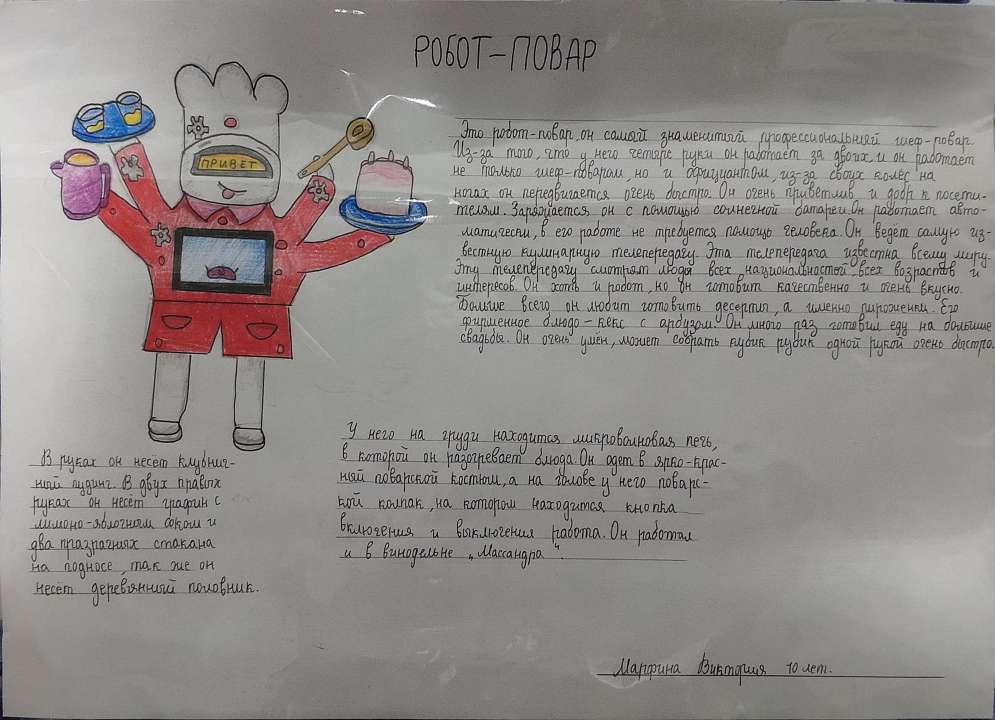 РОБОТ-ПОВАР
ПРИВЕТ
Это робот-повар, он самый знаменитый профессиональный шеф-повар.
Из-за того, что у него четыре руки он работает за двоих, и он работает
не только шеф-поваром, но и официантом, из-за своих колёс на
ногах он передвигается очень быстро. Он очень приветлив и добр к посети-
телям. Заряжается он с помощью солнечной батареи. Он работает авто-
матически, в его работе не требуется помощь человека. Он ведет самую из-
вестную кулинарную телепередачу. Эта телепередача известна всему миру.
Эту телепередачу смотрят люди всех национальностей, всех возрастов и
интересов. Он хотя и робот, но он готовит качественно и очень вкусно.
Больше всего он любит готовить десерты, а именно пироженки. Его
фирменное блюдо - кекс с арбузом. Он много раз готовил еду на большие
свадьбы. Он очень умён, может собрать кубик рубик одной рукой очень быстро.
У него на груди находится микроволновая печь,
в которой он разогревает блюда. Он одет в ярко-крас-
ный поварской костюм, а на голове у него поварс-
кой колпак, на котором находится кнопка
включения и выключения работа. Он работал
и в винодельне „Массандра".
В руках он несёт клубнич-
ный пудинг. В двух правых
руках он несёт графин с
лимоно-яблочным соком и
два празрачных стакана
на подносе, так же он
несёт деревянный половник.
Марфина Виктория 10 лет.